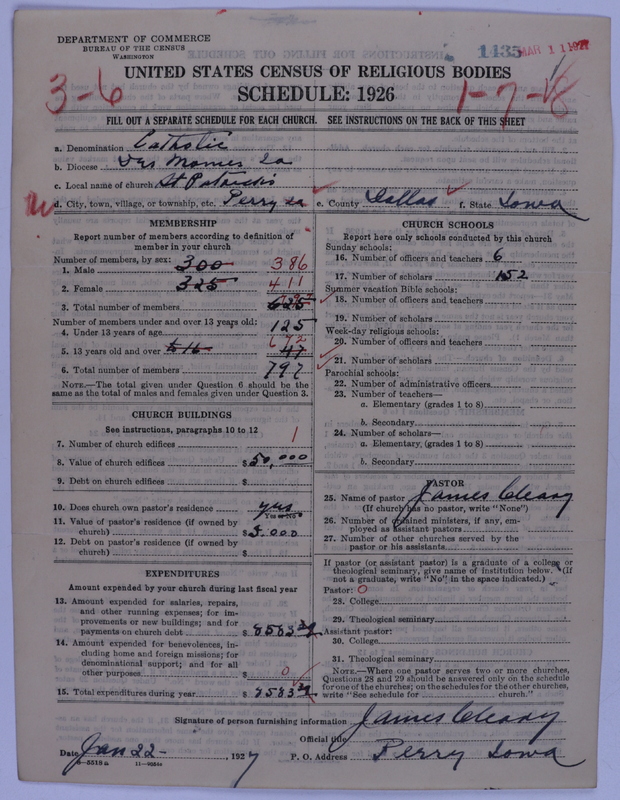 DEPARTMENT OF COMMERCE
BUREAU OF THE CENSUS
WASHINGTON
1435
MAR 11 1927
UNITED STATES CENSUS OF RELIGIOUS BODIES
3-6
SCHEDULE: 1926
1-7-18
FILL OUT A SEPARATE SCHEDULE FOR EACH CHURCH. SEE INSTRUCTIONS ON THE BACK OF THIS SHEET
a. Denomination Catholic
b. Diocese Des Moines Ia
c. Local name of church St Patricks
d. City, town, village, or township, etc. Perry Ia e. County Dallas f. State Iowa
MEMBERSHIP
Report number of members according to definition of
member in your church
Number of members, by sex:
1. Male 300 386
2. Female 325 411
3. Total number of members 625 797
Number of members under and over 13 years old:
4. Under 13 years of age 125
5. 13 years old and over 672
6. Total number of members 797
NOTE.—The total given under Question 6 should be the
same as the total of males and females given under Question 3.
CHURCH BUILDINGS
See instructions, paragraphs 10 to 12
7. Number of church edifices 1
8. Value of church edifices $50,000
9. Debt on church edifices $
10. Does church own pastor's residence yes
Yes or No
11. Value of pastor's residence (if owned by
church) $5.000
12. Debt on pastor's residence (if owned by
church) $
EXPENDITURES
Amount expended by your church during last fiscal year
13. Amount expended for salaries, repairs,
and other running expenses; for im-
provements or new buildings; and for
payments on church debt $8583 39
14. Amount expended for benevolences, in-
cluding home and foreign missions; for
denominational support; and for all
other purposes $ 0
15. Total expenditures during year $8583 39
CHURCH SCHOOLS
Report here only schools conducted by this church
Sunday schools:
16. Number of officers and teachers 6
17. Number of scholars 152
Summer vacation Bible schools:
18. Number of officers and teachers
19. Number of scholars
Week-day religious schools:
20. Number of officers and teachers
21. Number of scholars
Parochial schools:
22. Number of administrative officers
23. Number of teachers—
a. Elementary (grades 1 to 8)
b. Secondary
24. Number of scholars—
a. Elementary (grades 1 to 8)
b. Secondary
PASTOR
25. Name of pastor James Cleary
(If church has no pastor, write "None")
26. Number of ordained ministers, if any, em-
ployed as assistant pastors
27. Number of other churches served by the
pastor or his assistants
If pastor (or assistant pastor) is a graduate of a college or
theological seminary, give name of institution below. (If
not a graduate, write "No" in the space indicated.)
Pastor: 0
28. College
29. Theological seminary
Assistant pastor:
30. College
31. Theological seminary
NOTE.—Where one pastor serves two or more churches,
Questions 28 and 29 should be answered only on the schedule
for one of the churches; on the schedules for the other churches,
write "See schedule for church."
Signature of person furnishing information James Cleary
Official title
Date Jan 22-, 1927 P. O. Address Perry Iowa